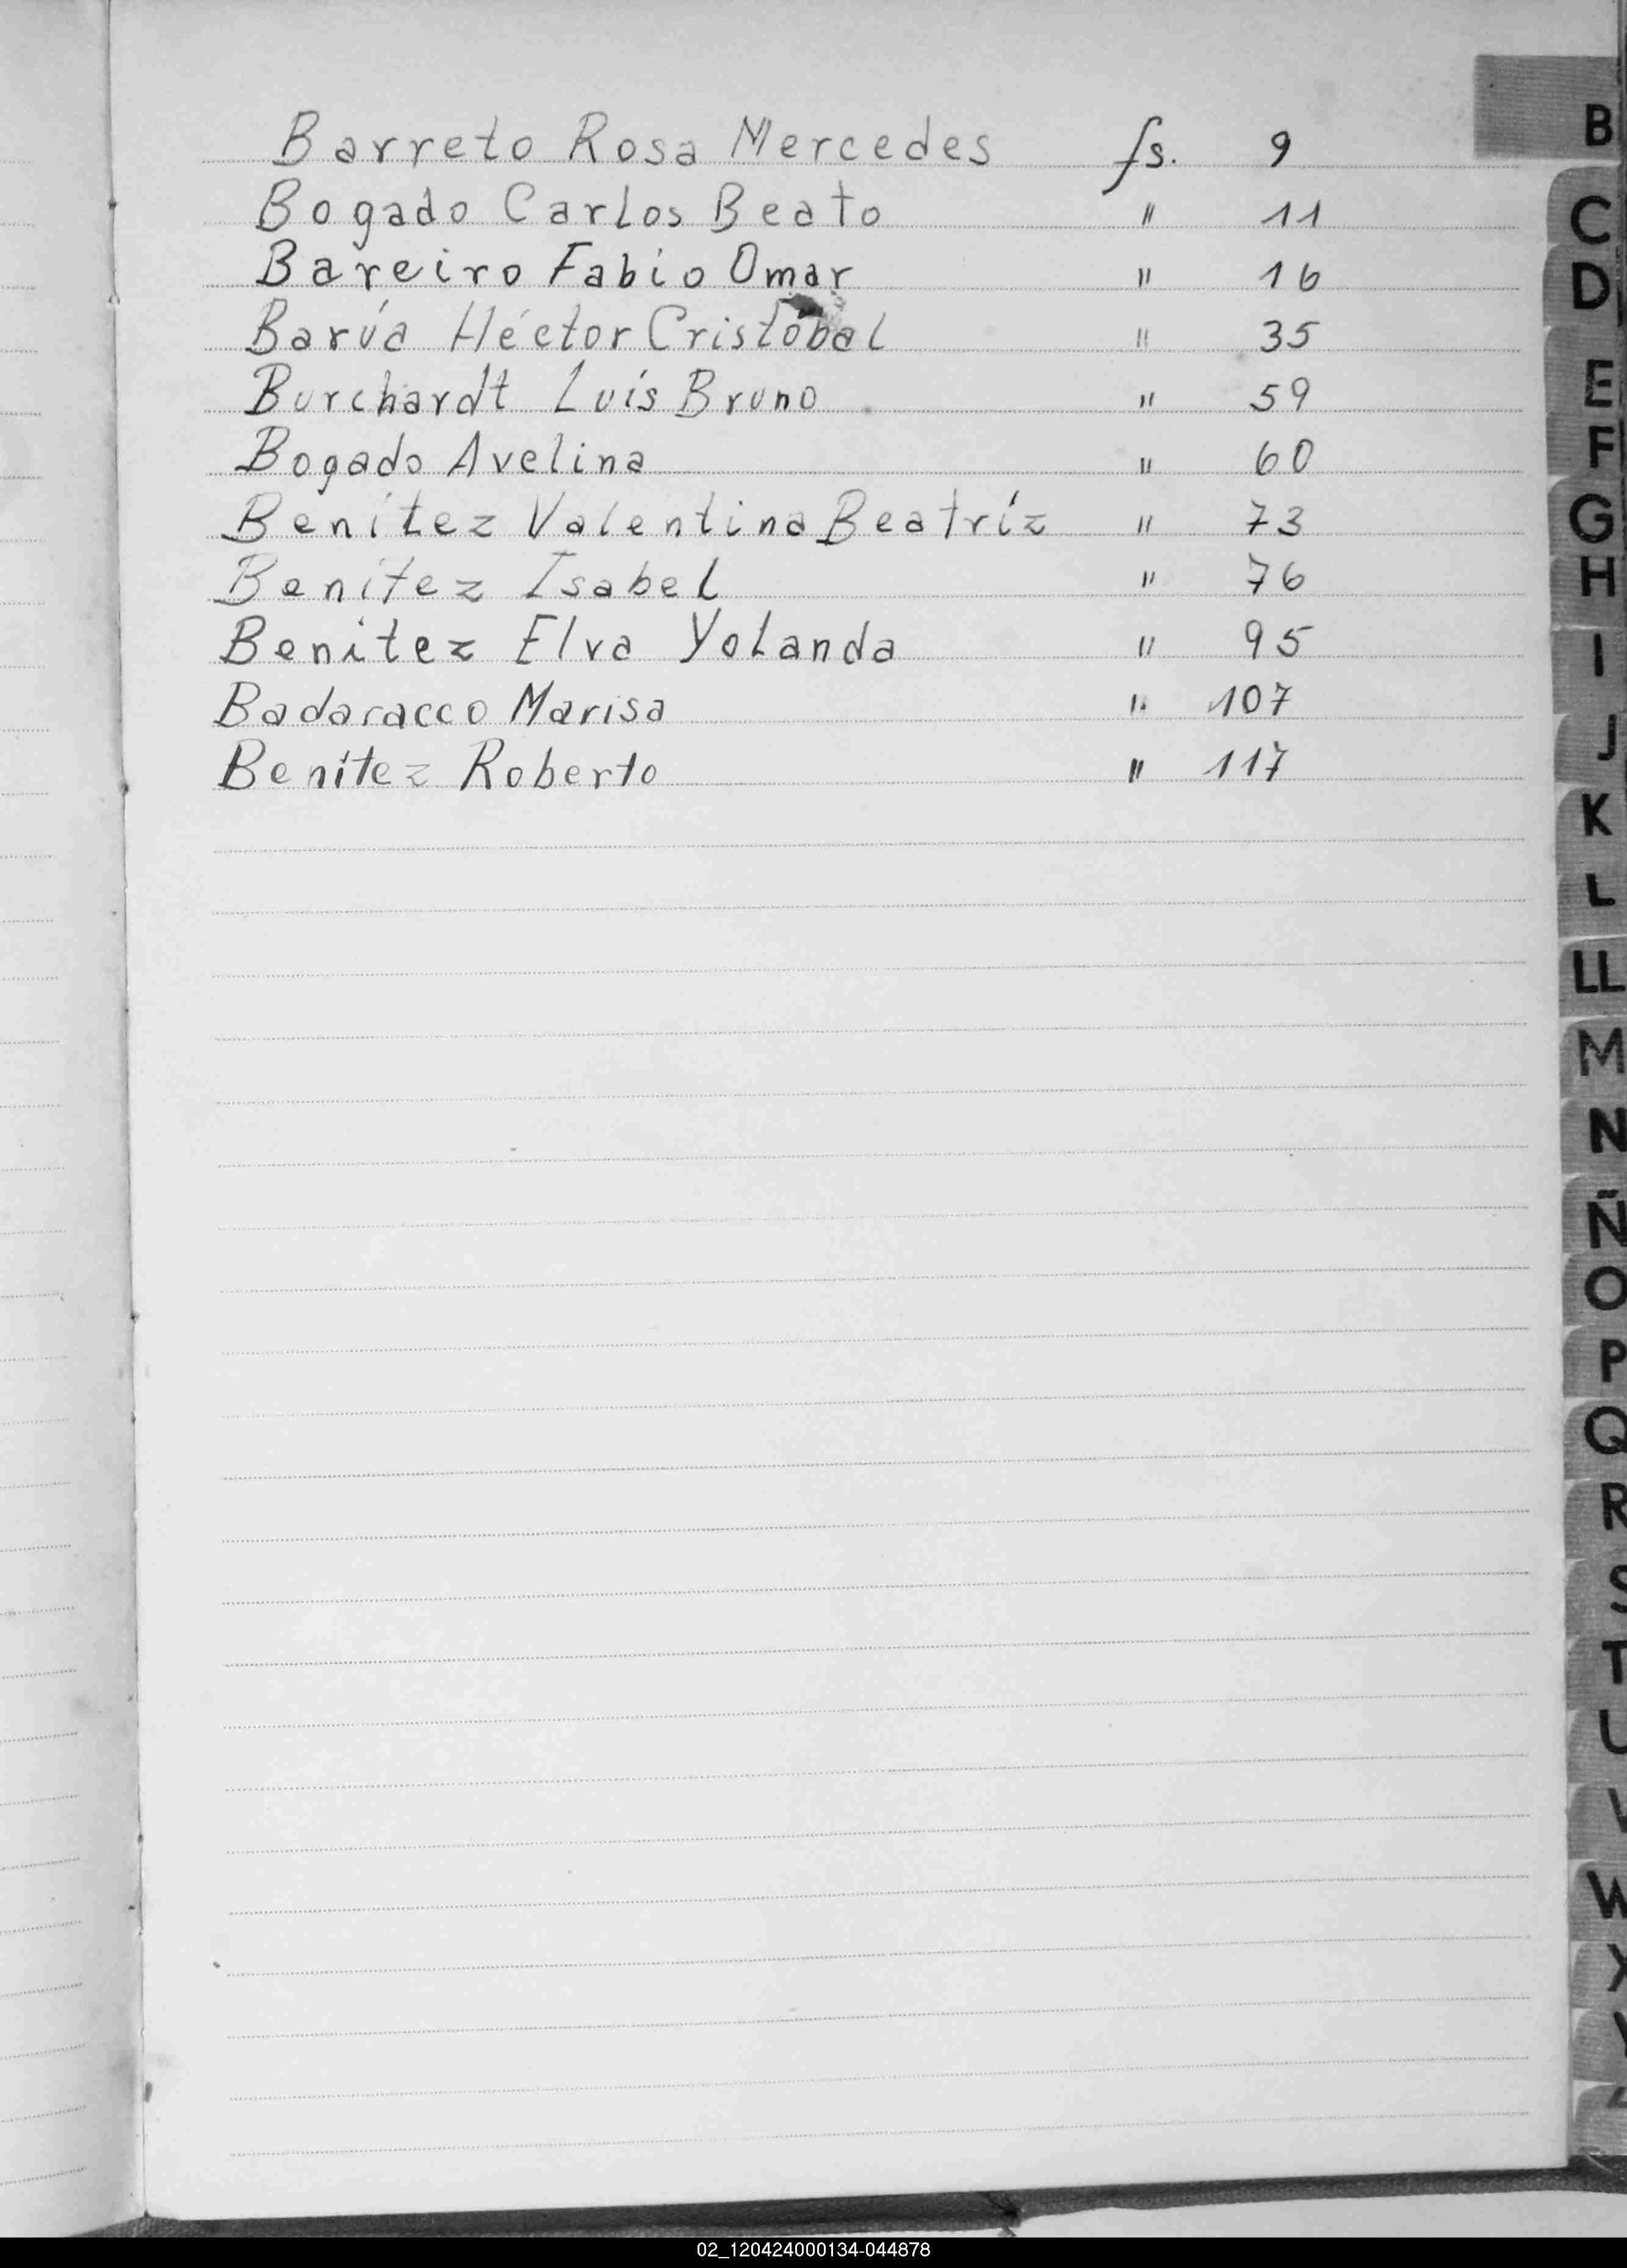 Barreto Rosa Mercedes fs. 9
Bogado Carlos Beato " 11
Bareiro Fabio Omar " 16
Barúa Héctor Cristóbal " 35
Burchardt Luis Bruno " 59
Bogado Avelina " 60
Benítez Valentina Beatríz " 73
Benítez Isabel " 76
Benitez Elva Yolanda " 95
Badaracco Marisa " 107
Benítez Roberto " 117
B
C
D
E
F
G
H
I
J
K
L
LL
M
N
Ñ
O
P
Q
R
S
T
U
V
W
X
02_120424000134-044878